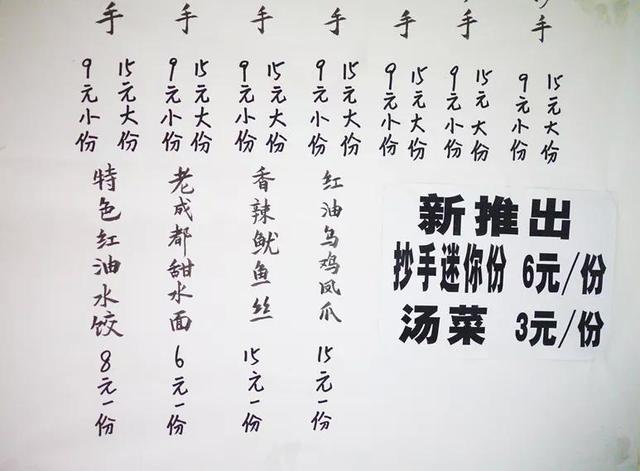 手
9元小份
15元大份
手
9元小份
15元大份
手
9元小份
15元大份
手
9元小份
15元大份
手
9元小份
15元大份
手
9元小份
15元大份
手
9元小份
15元大份
特色红油水饺 8元一份
老成都甜水面 6元一份
香辣鱿鱼丝 15元一份
红油乌鸡凤爪 15元一份
新推出
抄手迷你份 6元/份
汤菜 3元/份